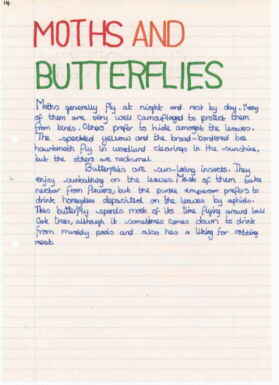 MOTHS AND
BUTTERFLIES
Moths generally fly at night and not by day. Many
of them are very well camouflaged to protect them
from birds. Others prefer to hide amongst the leaves.
The speckled yellows and the broad-bordered bee
hawkmoth fly in woodland clearings in the sunshine,
but the others are nocturnal.
Butterflies are sun-loving insects. They
enjoy sunbathing on the leaves. Most of them take
nectar from flowers, but the purple emperor prefers to
drink honeydew deposited on the leaves by aphids.
This butterfly spends most of its time flying around
Oak trees, although it sometimes comes down to drink
from muddy pools and also has a liking for rotting
meat.